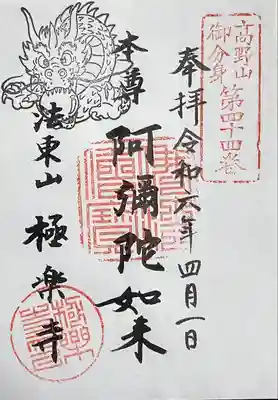 高野山
御分身
第四十四巻
奉拝
令和六年四月一日
本尊
阿彌陀如来
法東山
極楽寺
極楽寺